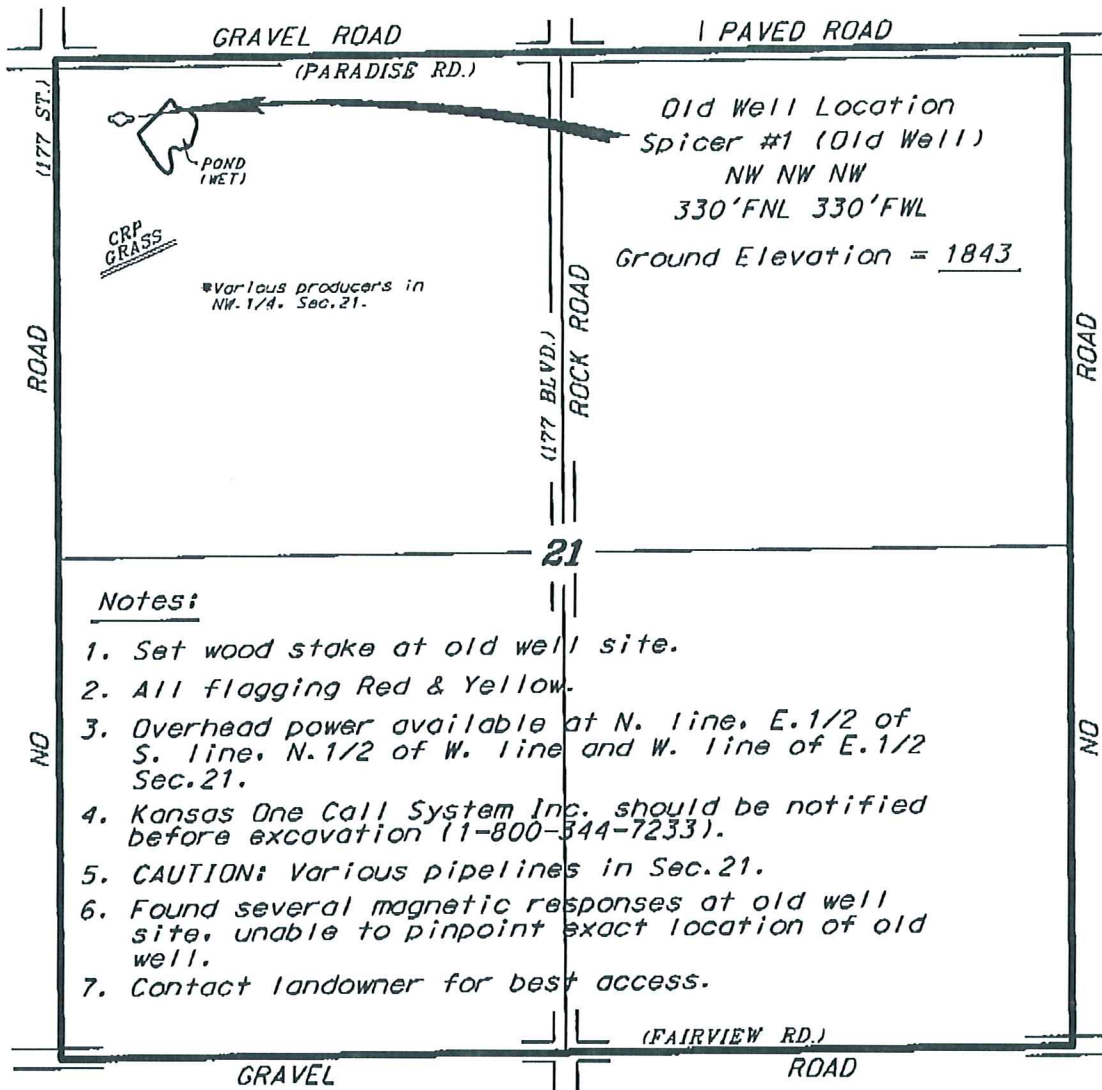 GRAVEL ROAD
PAVED ROAD
(PARADISE RD.)
(177 ST.)
POND
(WET)
CRP
GRASS
*Various producers in
NW.1/4. Sec.21.
Old Well Location
Spicer #1 (Old Well)
NW NW NW
330'FNL 330'FWL
Ground Elevation = 1843
ROAD
(177 BLVD.)
ROCK ROAD
ROAD
21
Notes:
1. Set wood stake at old well site.
2. All flagging Red & Yellow.
3. Overhead power available at N. line, E.1/2 of
S. line, N.1/2 of W. line and W. line of E.1/2
Sec.21.
4. Kansas One Call System Inc. should be notified
before excavation (1-800-344-7233).
5. CAUTION: Various pipelines in Sec.21.
6. Found several magnetic responses at old well
site, unable to pinpoint exact location of old
well.
7. Contact landowner for best access.
NO
NO
(FAIRVIEW RD.)
GRAVEL
ROAD